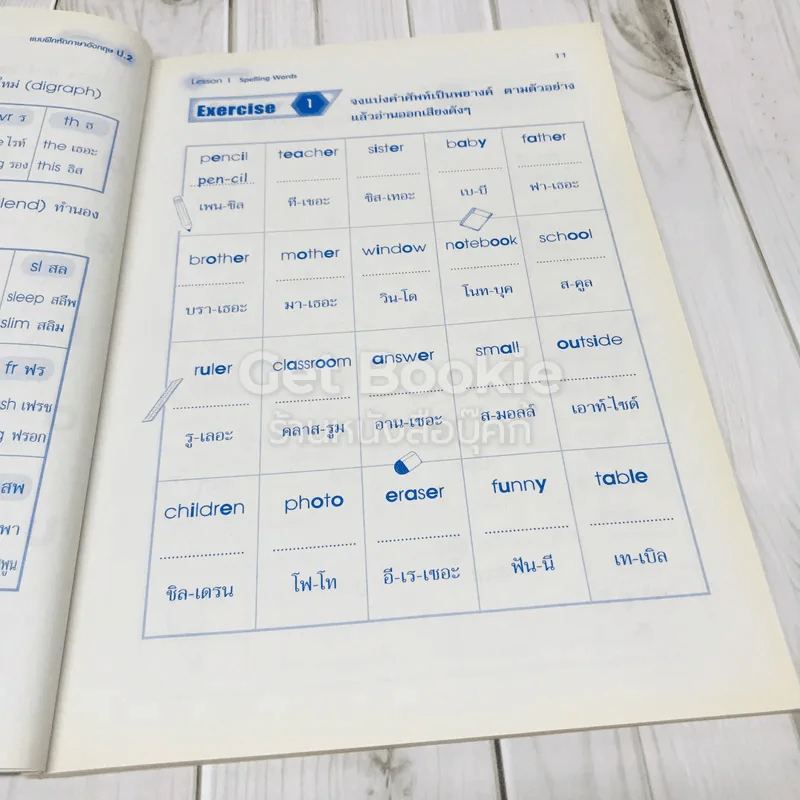 แบบฝึกหัดภาษาอังกฤษ ป.2
ใหม่ (digraph)
wr ร
th ธ
the เธอะ
รอง this ธิส
ทำนอง
sl สล
sleep สลีพ
slim สลิม
fr ฟร
เฟรช
ฟรอก
11
Lesson 1 Spelling Words
Exercise 1
จงแบ่งคำศัพท์เป็นพยางค์ ตามตัวอย่าง
แล้วอ่านออกเสียงดังๆ
pencil teacher sister baby father
pen-cil
เพน-ซิล ที-เชอะ ซิส-เทอะ เบ-บี ฟา-เธอะ
brother mother window notebook school
บรา-เธอะ มา-เธอะ วิน-โด โนท-บุค ส-คูล
ruler classroom answer small outside
รู-เลอะ คลาส-รูม อาน-เซอะ ส-มอลล์ เอาท์-ไซด์
Get Bookie
ร้านหนังสือบุ๊คกี้
children photo eraser funny table
ชิล-เดรน โฟ-โท อี-เร-เซอะ ฟัน-นี เท-เบิล